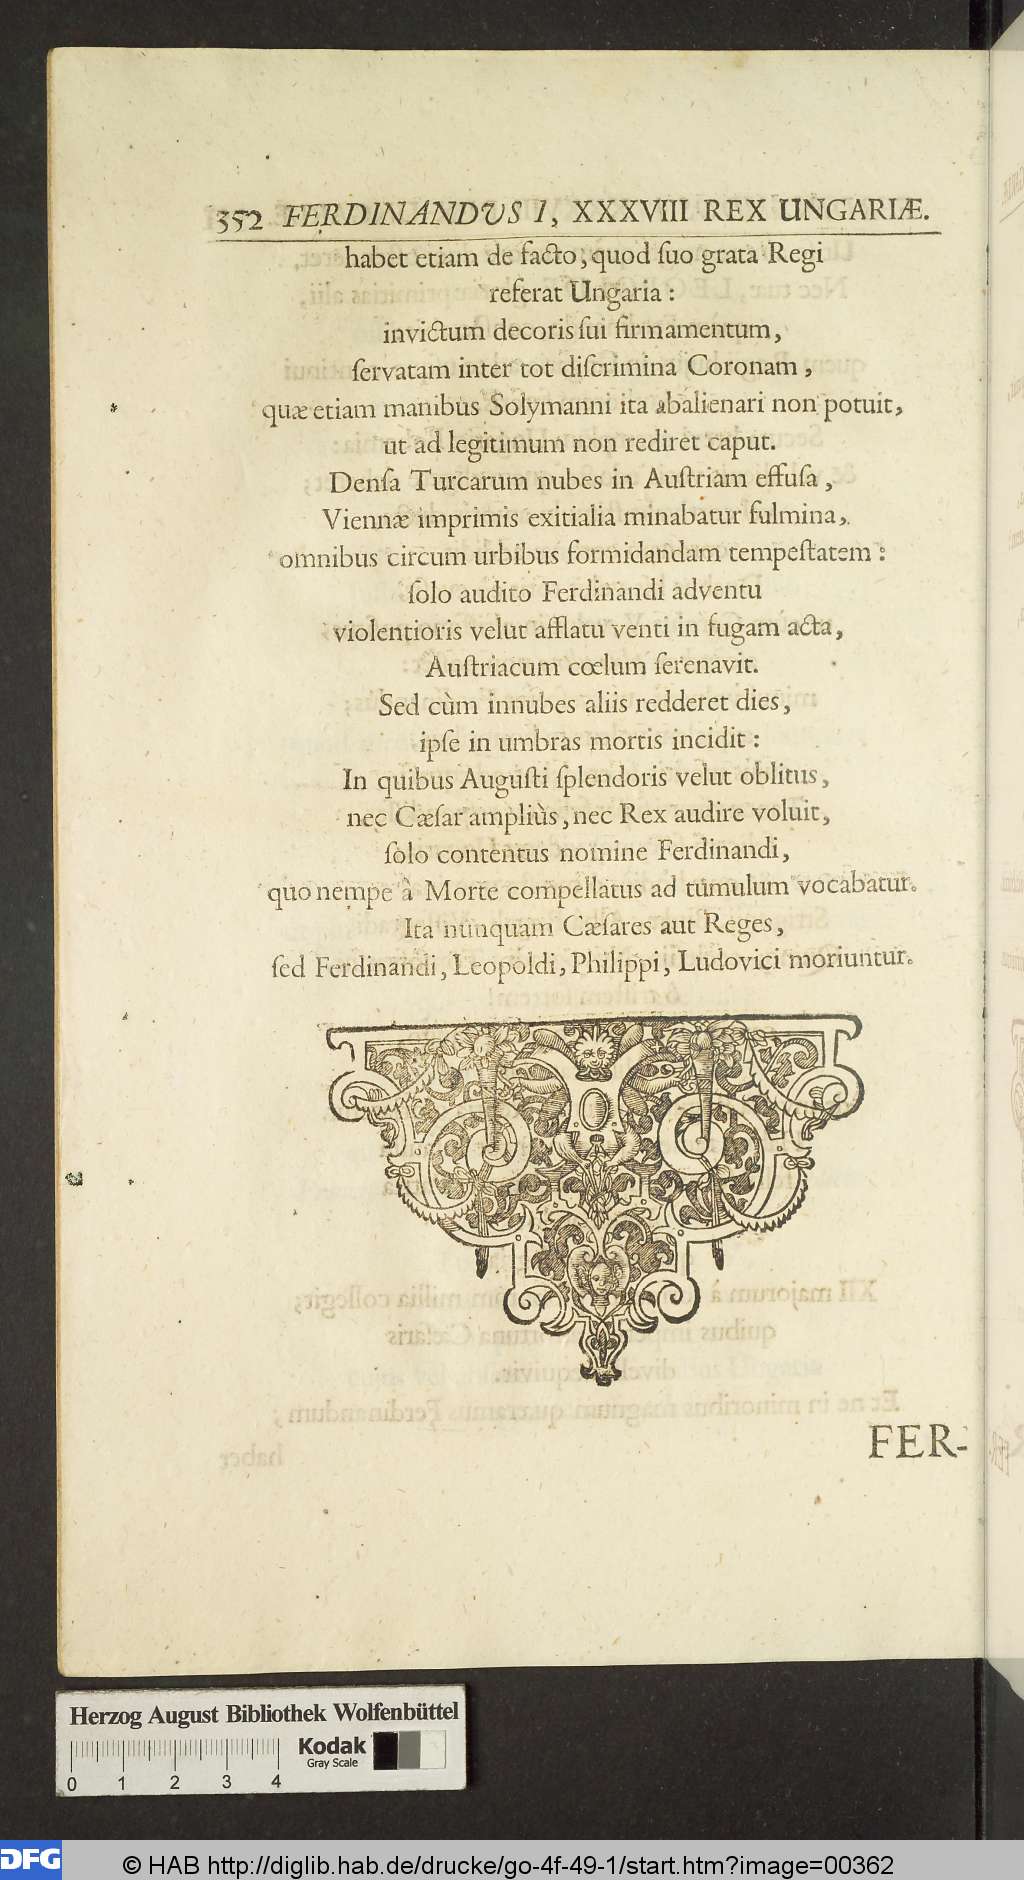 352 FERDINANDVS I, XXXVIII REX UNGARIÆ.
habet etiam de facto, quod ſuo grata Regi
referat Ungaria :
invictum decoris ſui firmamentum,
ſervatam inter tot diſcrimina Coronam,
quæ etiam manibus Solymanni ita abalienari non potuit,
ut ad legitimum non rediret caput.
Denſa Turcarum nubes in Auſtriam effuſa,
Viennæ imprimis exitialia minabatur fulmina,
omnibus circum urbibus formidandam tempeſtatem :
ſolo audito Ferdinandi adventu
violentioris velut afflatu venti in fugam acta,
Auſtriacum cœlum ſerenavit.
Sed cùm innubes aliis redderet dies,
ipſe in umbras mortis incidit :
In quibus Auguſti ſplendoris velut oblitus,
nec Cæſar ampliùs, nec Rex audire voluit,
ſolo contentus nomine Ferdinandi,
quo nempe à Morte compellatus ad tumulum vocabatur.
Ita nunquam Cæſares aut Reges,
ſed Ferdinandi, Leopoldi, Philippi, Ludovici moriuntur.
FER-
Herzog August Bibliothek Wolfenbüttel
Kodak
Gray Scale
0 1 2 3 4
DFG
© HAB http://diglib.hab.de/drucke/go-4f-49-1/start.htm?image=00362